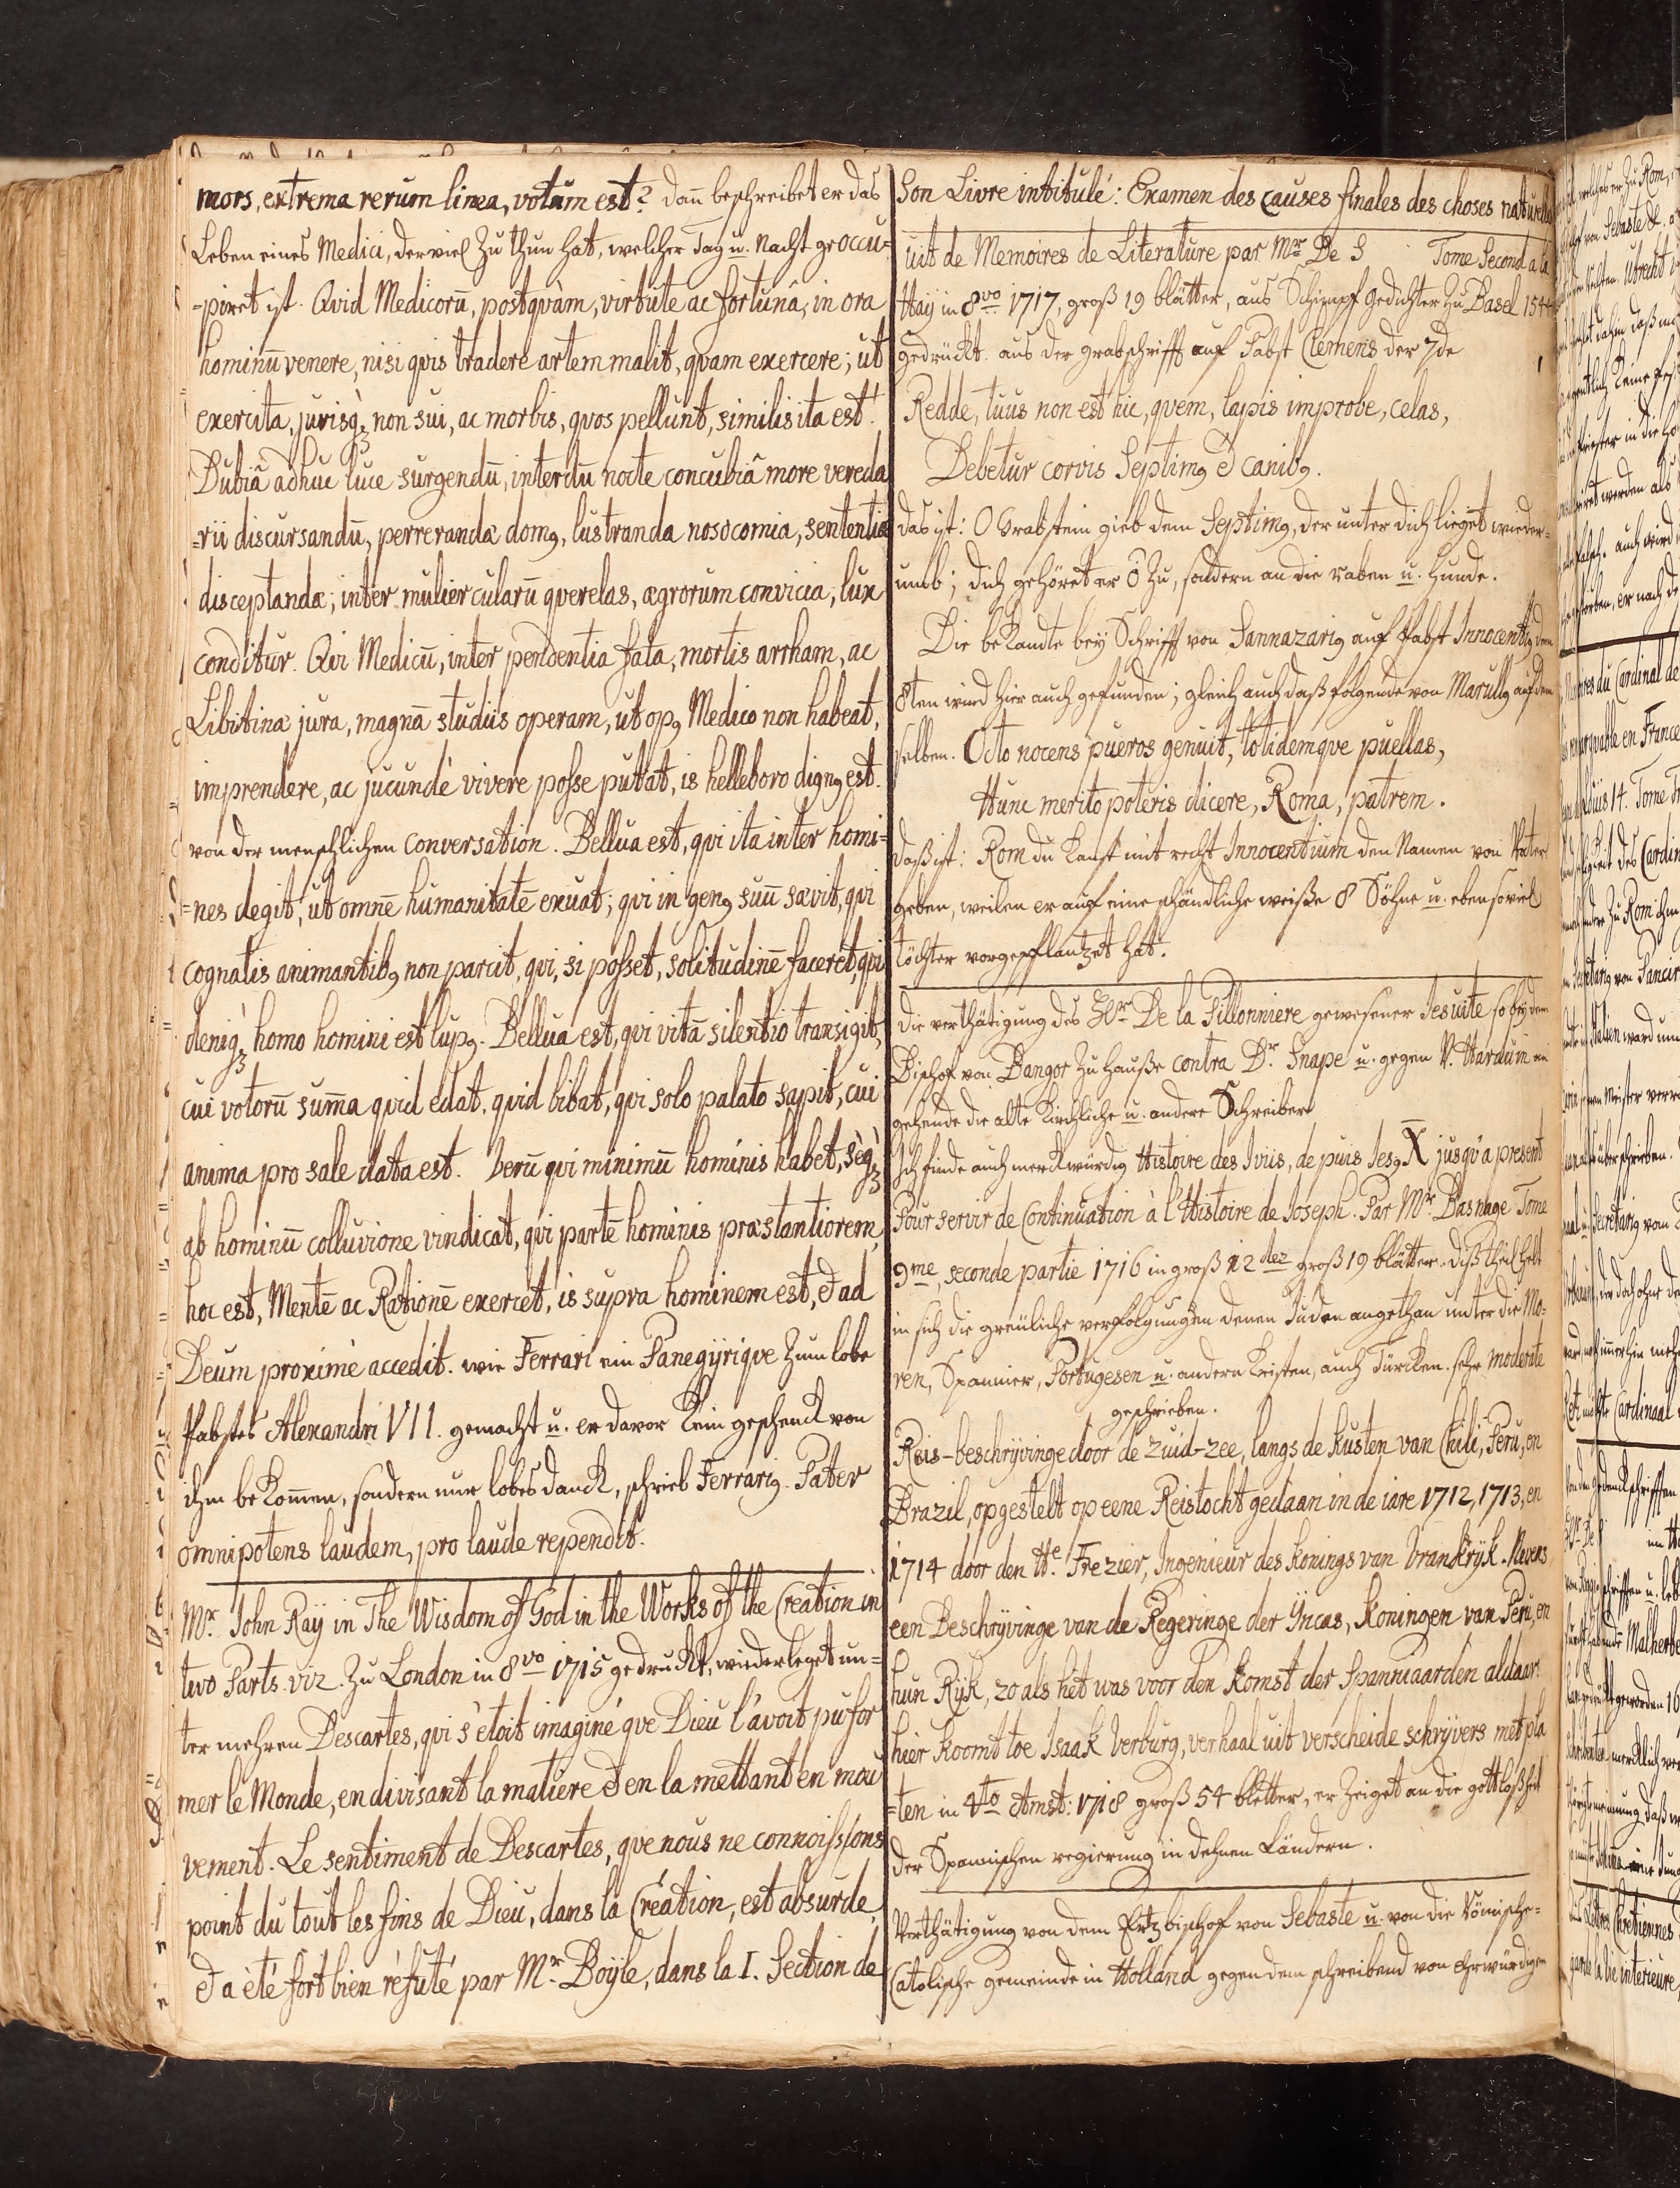 mors, extrema rerum linea, votum est? dan̄ beschreibet er das
Leben eines Medici, der viel Zu thun hat, welcher Tag u. Nacht geoccu-
-piret ist. Qvid Medicorū, postqvàm, virtute ac fortunâ, in ora
hominū venere, nisi qvis tradere artem malit, qvam exercere; ut
exercita, jurisqꝫ non sui, ac morbis, qvos pellunt, similis ita est!
Dubiâ adhuc luce surgendū, interdū nocte concubiâ more vereda
=rii discursandū, perreranda domꝰ, lustranda nosocomia, sententiæ
disceptandæ; inter muliercularū qverelas, ægrorum convicia, lux
conditur. Qvi Medicū, inter pendentia fata, mortis arrham, ac
Libitinæ jura, magnā studiis operam, ut opꝰ Medico non habeat,
imprendere, ac jucundè vivere posse puttat, is helleboro dignꝰ est.
von der menschlichen conversation. Bellua est, qvi ita inter homi=
=nes degit, ut omnē humanitatē exuat; qvi in genꝰ suū sævit, qvi
cognatis animantibꝰ non parcit, qvi, si posset, solitudinē faceret, qvi
deniqꝫ homo homini est lupꝰ. Bellua est, qvi vitā silentio transigit,
cui votorū sum̄a qvid edat, qvid bibat, qvi solo palato sapit, cui
anima pro sale data est. Verū qvi minimū hominis habet, sèqꝫ
ab hominū colluvione vindicat, qvi partē hominis præstantiorem,
hoc est, Mentē ac Rationē exercet, is supra hominem est, & ad
Deum proximè accedit. wie Ferrari ein Panegÿriqve Zum lobe
Pabstes Alexandri VII. gemacht u. er davor Kein geschenck von
ihm beKom̄en, sondern nur lobes danck, schrieb Ferrariꝰ. Pater
omnipotens laudem, pro laude rependit.
Mr. John Raÿ in The Wisdom of God in the Works of the Creation in
two Parts. viz. Zu London in 8vo 1715 gedruckt, wiederleget un=
ter mehren Descartes, qvi s'étoit imaginé qve Dieu l'avoit pu for
mer le Monde, en divisant la matiere & en la mettant en mou
vement. Le sentiment de Descartes, qve nous ne connoissons
point du tout les fins de Dieu, dans la Création, est absurde,
& a été fort bien réfuté par Mr. Boÿle, dans la I. Section de
Son Livre intitulé: Examen des causes finales des choses naturelles
uit de Memoires de Literature par Mr. De S Tome Second a la
Haÿ in 8vo 1717, groß 19 blätter, aus Schimpf gedichter Zu Basel 1544
gedrückt. aus der grabschrifft auf Pabst Clemens der 7de
Redde, tuus non est hic, qvem, lapis improbe, celas,
Debetur corvis Septimꝰ & canibꝰ.
das ist: O Grabstein gieb dem Septimꝰ, der unter dich lieget wieder=
umb; dich gehöret er ō Zu, sondern an die raben u. Hunde.
Die beKandte beÿ Schrifft von Sannazariꝰ auf Pabst Innocentiꝰ dem
8ten wird hier auch gefunden; gleich auch daß folgende von Marullꝰ auf dem
selben. Octo nocens pueros genuit, totidemqve puellas,
Hunc merito poteris dicere, Roma, patrem.
daß ist: Rom du Kanst mit recht Innocentium den Namen von Vater
geben, weilen er auf eine schändliche weiße 8 Söhne u. eben soviel
töchter vorgepflantzet hat.
die verthätigung des Hr. De la Pillonniere gewesener Jesuite so beÿ dem
Bischof von Bangor Zu Hauße contra Dr. Snape u. gegen P. Harduin an
gehende die alte Kirchliche u. andere Schreiber
Ich finde auch merckwürdig Histoire des Iviis, de puis Jesꝰ X jusqv'a present
Pour servir de Continuation à l'Histoire de Joseph. Par Mr. Basnage Tome
9me, seconde partie 1716 in groß 12dez groß 19 blätter. diß theil helt
in sich die greüliche verfolgungen denen Juden angethan unter die Mo=
ren, Spannier, Portugesen u. andern Kristen, auch Türcken. sehr moderate
geschrieben.
Reis-beschrijvinge door de Zuid-zee, langs de Kusten van Chili, Peru, en
Brazil, opgestelt op eene Reistocht gedaan in de iare 1712, 1713, en
1714 door den He. Frezier, Ingenieur des Konings van Vrankrÿk. Nevens
een Beschrÿvinge van de Regeringe der Yncas, Koningen van Peru, en
hun Rÿk, zo als het was voor den Komst der Spanniaarden aldaar.
hier Koomt toe Isaak Verburg, verhaal uit verscheide schrÿvers met pla
=ten in 4to Amst: 1718 groß 54 blätter, er Zeiget an die gottloßheit
der Spannischen regierung in dehnen Ländern.
Verthätigung von dem Ertzbischof von Sebaste u. von die Römische=
Catolische gemeinde in Holland gegen dem schreibend von Ehrwürdigen